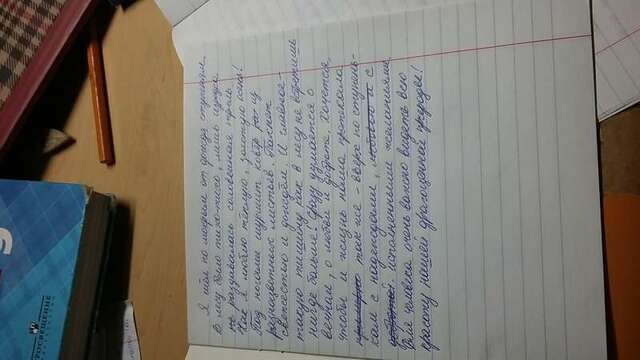 9
ПРОСВЕЩЕНИЕ
Я шёл по мокрым от дождя ступеням.
В лесу было тихо-тихо, лишь изредка
не раздавалась соловьиная трель.
Как я люблю тёплую, золотую осень!
Под ногами шуршит ковёр ра из
разноцветных листьев. Пахнет
свежестью и дождём. И главное-
такую тишину как в лесу не встретишь
нигде больше! Сразу думается о
вечном, о любви и доброте. Хочется,
чтобы и жизнь наша протекала
примерно так же - вверх по ступень-
кам с надеждами, любовью и с
исполненными желаниями.
Для человека очень важно видеть всю
красоту нашей драгоценной природы!